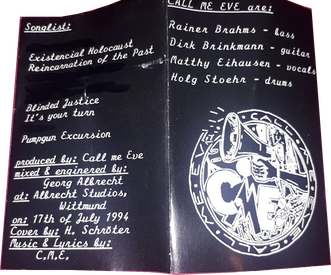 Songlist:
Existencial Holocaust
Reincarnation of the Past
Blinded Justice
It's your turn
Pumpgun Excursion
produced by: Call me Eve
mixed & enginered by:
Georg Albrecht
at: Albrecht Studios,
Wittmund
on: 17th of July 1994
Cover by: H. Schröter
Music & Lyrics by:
C.M.E.
CALL ME EVE are:
Rainer Brahms - bass
Dirk Brinkmann - guitar
Matthy Eihausen - vocals
Holy Stoehr - drums
CALL ME EVE
CALL ME EVE
CME